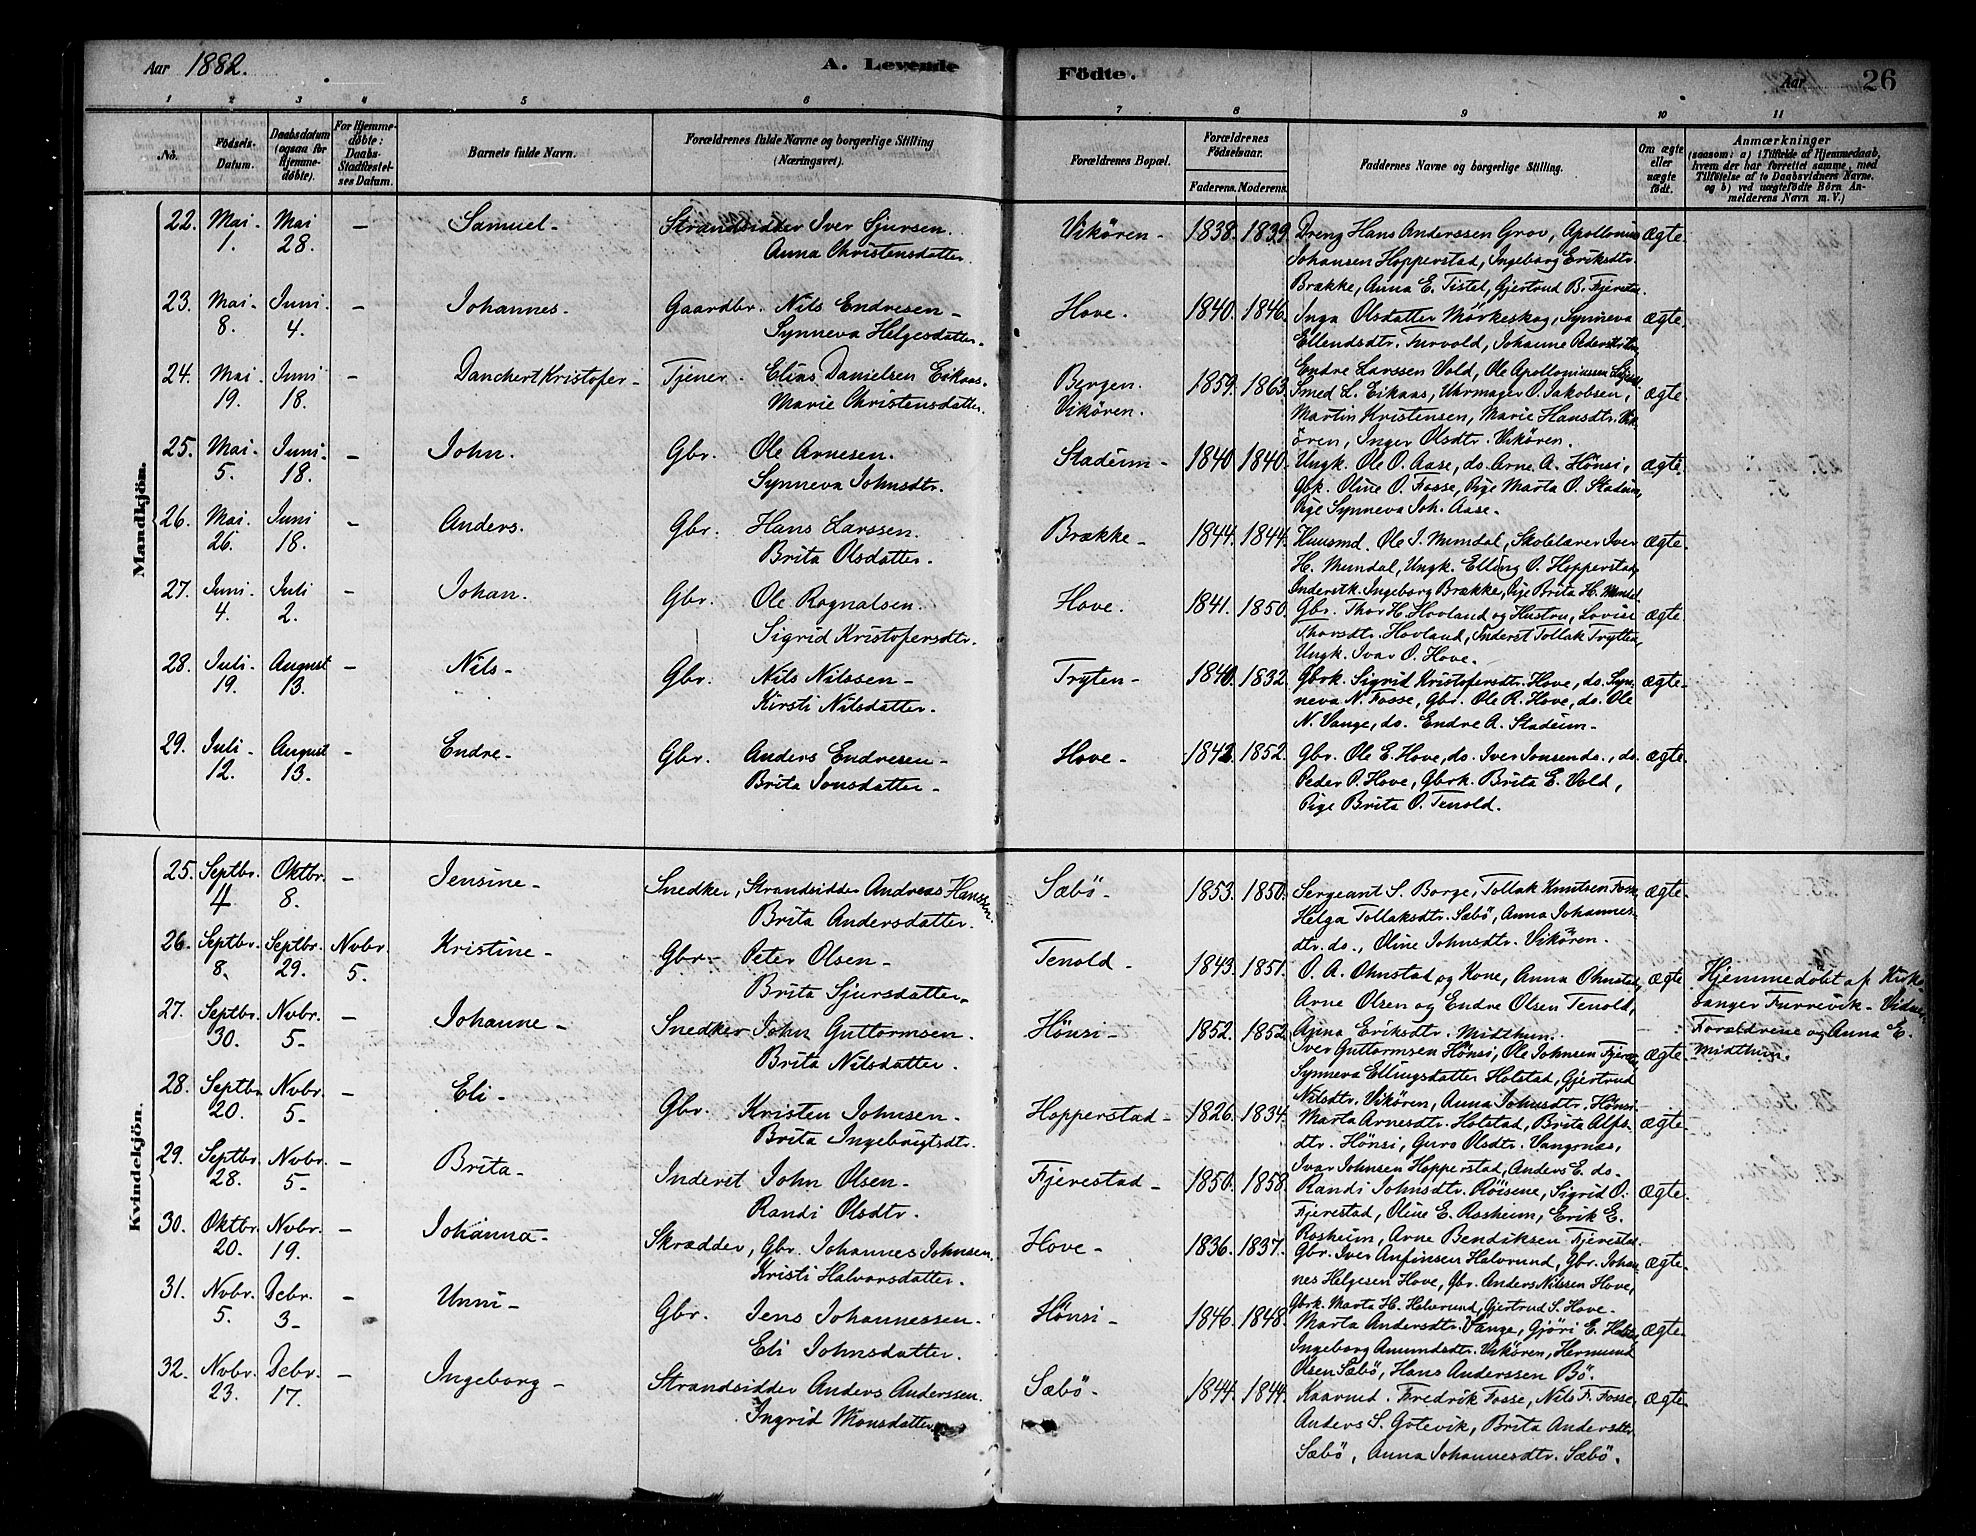 Aar 1882.
A. Levende Födte.
Aar 26
1 2 3 4 5 6 7 8 9 10 11
No.
Födsels-Datum.
Daabsdatum (ogsaa for Hjemmedøbte).
For Hjemmedøbte: Daabs-Stadfæstelses Datum.
Barnets fulde Navn.
Forældrenes fulde Navne og borgerlige Stilling (Næringsvei).
Forældrenes Bopæl.
Forældrenes Födselsaar.
Faderens. Moderens.
Faddernes Navne og borgerlige Stilling.
Om ægte eller uægte født.
Anmærkninger
(saasom: a) i Tilfælde af Hjemmedaab, hvem der har forrettet samme, med Tilføielse af to Daabsvidners Navne, og b) ved uægtefödte Börn Anmelderens Navn m. V.)
Mandkjön.
22. Mai 1. Mai 28. - Samuel- Strandsidder Iver Sjursen. Vikören- 1838. 1839. Dreng Hans Anderssen Grov, Apollonius ægte.
Anna Christensdatter. Johansen Hopperstad, Ingeborg Eriksdtr.
Brække, Anna E. Tistel, Gjertrud B. Fjerestad.
23. Mai 8. Juni 4. - Johannes. Gaardbr. Nils Endresen- Hove. 1840. 1846. Inga Olsdatter Mörkeskog, Synneva ægte.
Synneva Helgesdatter. Ellendsdtr. Turvold, Johanne Pedersdtr.
24. Mai 19. Juni 18. - Danchert Kristofer- Tjener. Elias Danielsen Eikaas. Bergen. 1859. 1863. Endre Larssen Vold, Ole Apolloniussen
Marie Christensdatter. Vikören. Smed L. Eikaas, Uhrmager O. Jakobsen, ægte
Martin Kristensen, Marie Hansdtr. Vik
ören, Inger Olsdtr. Vikören.
25. Mai 5. Juni 18. - John. Gbr. Ole Arnesen. Stadeim- 1840. 1840. Ungk. Ole O. Aase, do. Arne A. Hönsi, ægte.
Synneva Johnsdtr. Gbk. Oline O. Fosse, Pige Marta O. Stadeim,
Pige Synneva Joh. Aase.
26. Mai 26. Juni 18. - Anders. Gbr. Hans Larssen. Brække- 1844. 1844. Huusmd. Ole I. Mundal, Skolelærer Iver ægte.
Brita Olsdatter. H. Mundal, Ungk. Elling O. Hopperstad,
Inderstk. Ingeborg Brække, Pige Brita H. Mundal
27. Juni 4. Juli 2. - Johan. Gbr. Ole Rognalsen. Hove. 1841. 1850. Gbr. Thor H. Hovland og Hustru, Lovise ægte.
Sigrid Kristofersdtr. Thorsdtr. Hovland, Inderst Tollak Tryten,
Ungk. Ivar O. Hove.
28. Juli 19. August 13. - Nils- Gbr. Nils Nilssen- Tryten- 1840. 1832. Gbrk. Sigrid Kristofersdtr. Hove, do. Syn- ægte-
Kirsti Nilsdatter. neva N. Fosse, Gbr. Ole R. Hove, do. Ole
N. Vange, do. Endre A. Stadeim-
29. Juli 12. August 13. - Endre- Gbr. Anders Endresen- Hove- 1842. 1852. Gbr. Ole E. Hove, do. Iver Jonsen do., do. ægte.
Brita Jonsdatter- Peder P. Hove, Gbrk. Brita E. Vold,
Pige Brita O. Tenold.
Kvindekjön.
25. Septbr. 4. Oktbr. 8. - Jensine- Snedker, Strandsidder Andreas Hanssen. Sæbö- 1853. 1850. Sergeant S. Borge, Tollak Knutsen ægte.
Brita Andersdatter. Helga Tollaksdtr. Sæbö, Anna Johannes-
dtr. do., Oline Johnsdtr. Vikören.
26. Septbr. 8. Septbr. 29. Nvbr. 5. Kristine- Gbr- Peter Olsen- Tenold- 1843. 1851. O. A. Ohnstad og Kone, Anna Ohnstad, ægte Hjemmedöbt af Kirke-
Brita Sjursdatter. Arne Olsen og Endre Olsen Tenold, sanger Furrevik- Vidner,
Anna Eriksdtr. Midthun. Forældrene og Anna E. Midthun.
27. Septbr. 30. Nvbr. 5- - Johanne- Snedker John Guttormsen. Hönsi- 1852. 1852. Iver Guttormsen Hönsi, Ole Johnsen ægte.
Brita Nilsdatter. Synneva Ellingsdatter Holstad, Gjertrud
Nilsdtr. Vikören, Anna Johnsdtr. Hönsi
28. Septbr. 20. Nvbr. 5- - Eli- Gbr. Kristen Johnsen- Hopperstad- 1826. 1834. Marta Arnesdtr. Holstad, Brita Alfs- ægte-
Brita Ingebrigtsdtr. dtr. Hönsi, Guro Olsdtr. Vangsnes,
Ivar Johnsen Hopperstad, Anders E. do.
29. Septbr. 28. Nvbr. 5- - Brita- Inderst John Olsen- Fjerestad- 1850. 1858. Randi Johnsdtr. Röisene, Sigrid O. ægte.
Randi Olsdtr. Fjerestad, Oline E. Rosheim, Erik E.
Rosheim, Arne Bendiksen Fjerestad.
30. Oktbr. 20. Nvbr. 19. - Johanna- Skrædder, Gbr. Johannes Johnsen. Hove- 1836. 1837. Gbr. Iver Anfinsen Halvrund, Gbr. Johan- ægte-
Kristi Halvorsdatter. nes Helgesen Hove, Gbr. Anders Nilssen Hove,
Gbrk. Marta H. Halvrund, Gjertrud S. Hove.
31. Nvbr. 5. Debr. 3- - Unni- Gbr. Jens Johannessen. Hönsi- 1846. 1848. Marta Andersdtr. Vange, Gjöri E. ægte-
Eli Johnsdatter. Ingeborg Amundsdtr. Vikören, Hermund
Olsen Sæbö, Hans Anderssen Bö.
32. Nvbr. 23. Debr. 17. - Ingeborg- Strandsidder Anders Anderssen. Sæbö- 1844. 1844. Kaarmd. Fredrik Fosse, Nils F. Fosse, ægte.
Ingrid Monsdatter. Anders S. Gotevik, Brita Andersdtr.
Sæbö, Anna Johannesdtr. Sæbö.